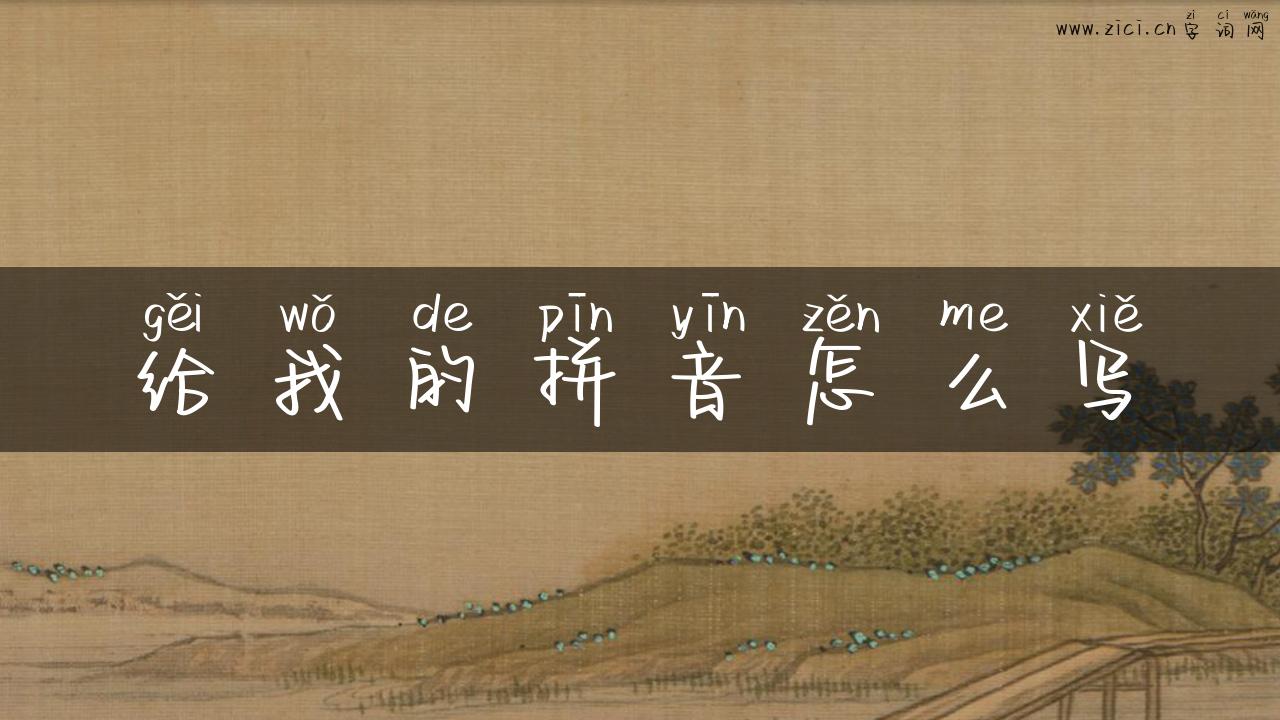 zì cí wǎng
www.zici.cn字词网
gěi wǒ de pīn yīn zěn me xiě
给我的拼音怎么写